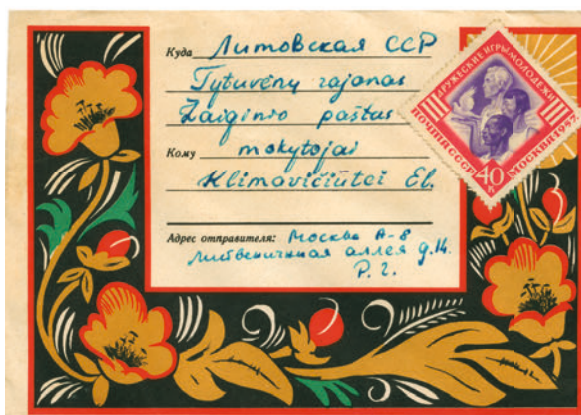 Куда Литовская ССР
Tytuvėnų rajonas
Žaiginio paštas
Кому mokytojai
Klimavičiūtei El.
Адрес отправителя: Москва А-8
Лиственичная аллея д.14.
Р. 2.
ДРУЖЕСКИЕ ИГРЫ МОЛОДЕЖИ
ПОЧТА СССР
МОСКВА 1957
40 К